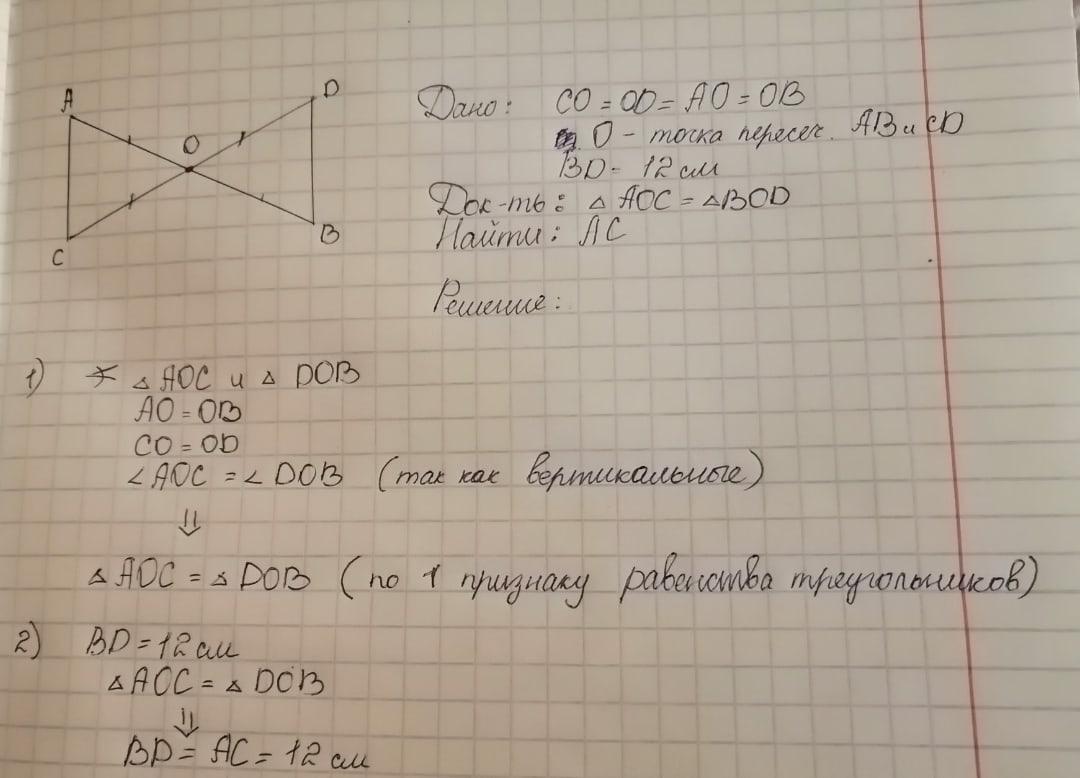 A
D
O
C
B
Дано: CO = OD = AO = OB
O - точка пересеч. AB и CD
BD = 12 см
Док-ть: △ AOC = △BOD
Найти: AC
Решение:
1) ∗ △ AOC и △ DOB
AO = OB
CO = OD
∠AOC = ∠ DOB (так как вертикальные)
⇓
△ AOC = △ DOB (по 1 признаку равенства треугольников)
2) BD = 12 см
△ AOC = △ DOB
⇓
BD = AC = 12 см